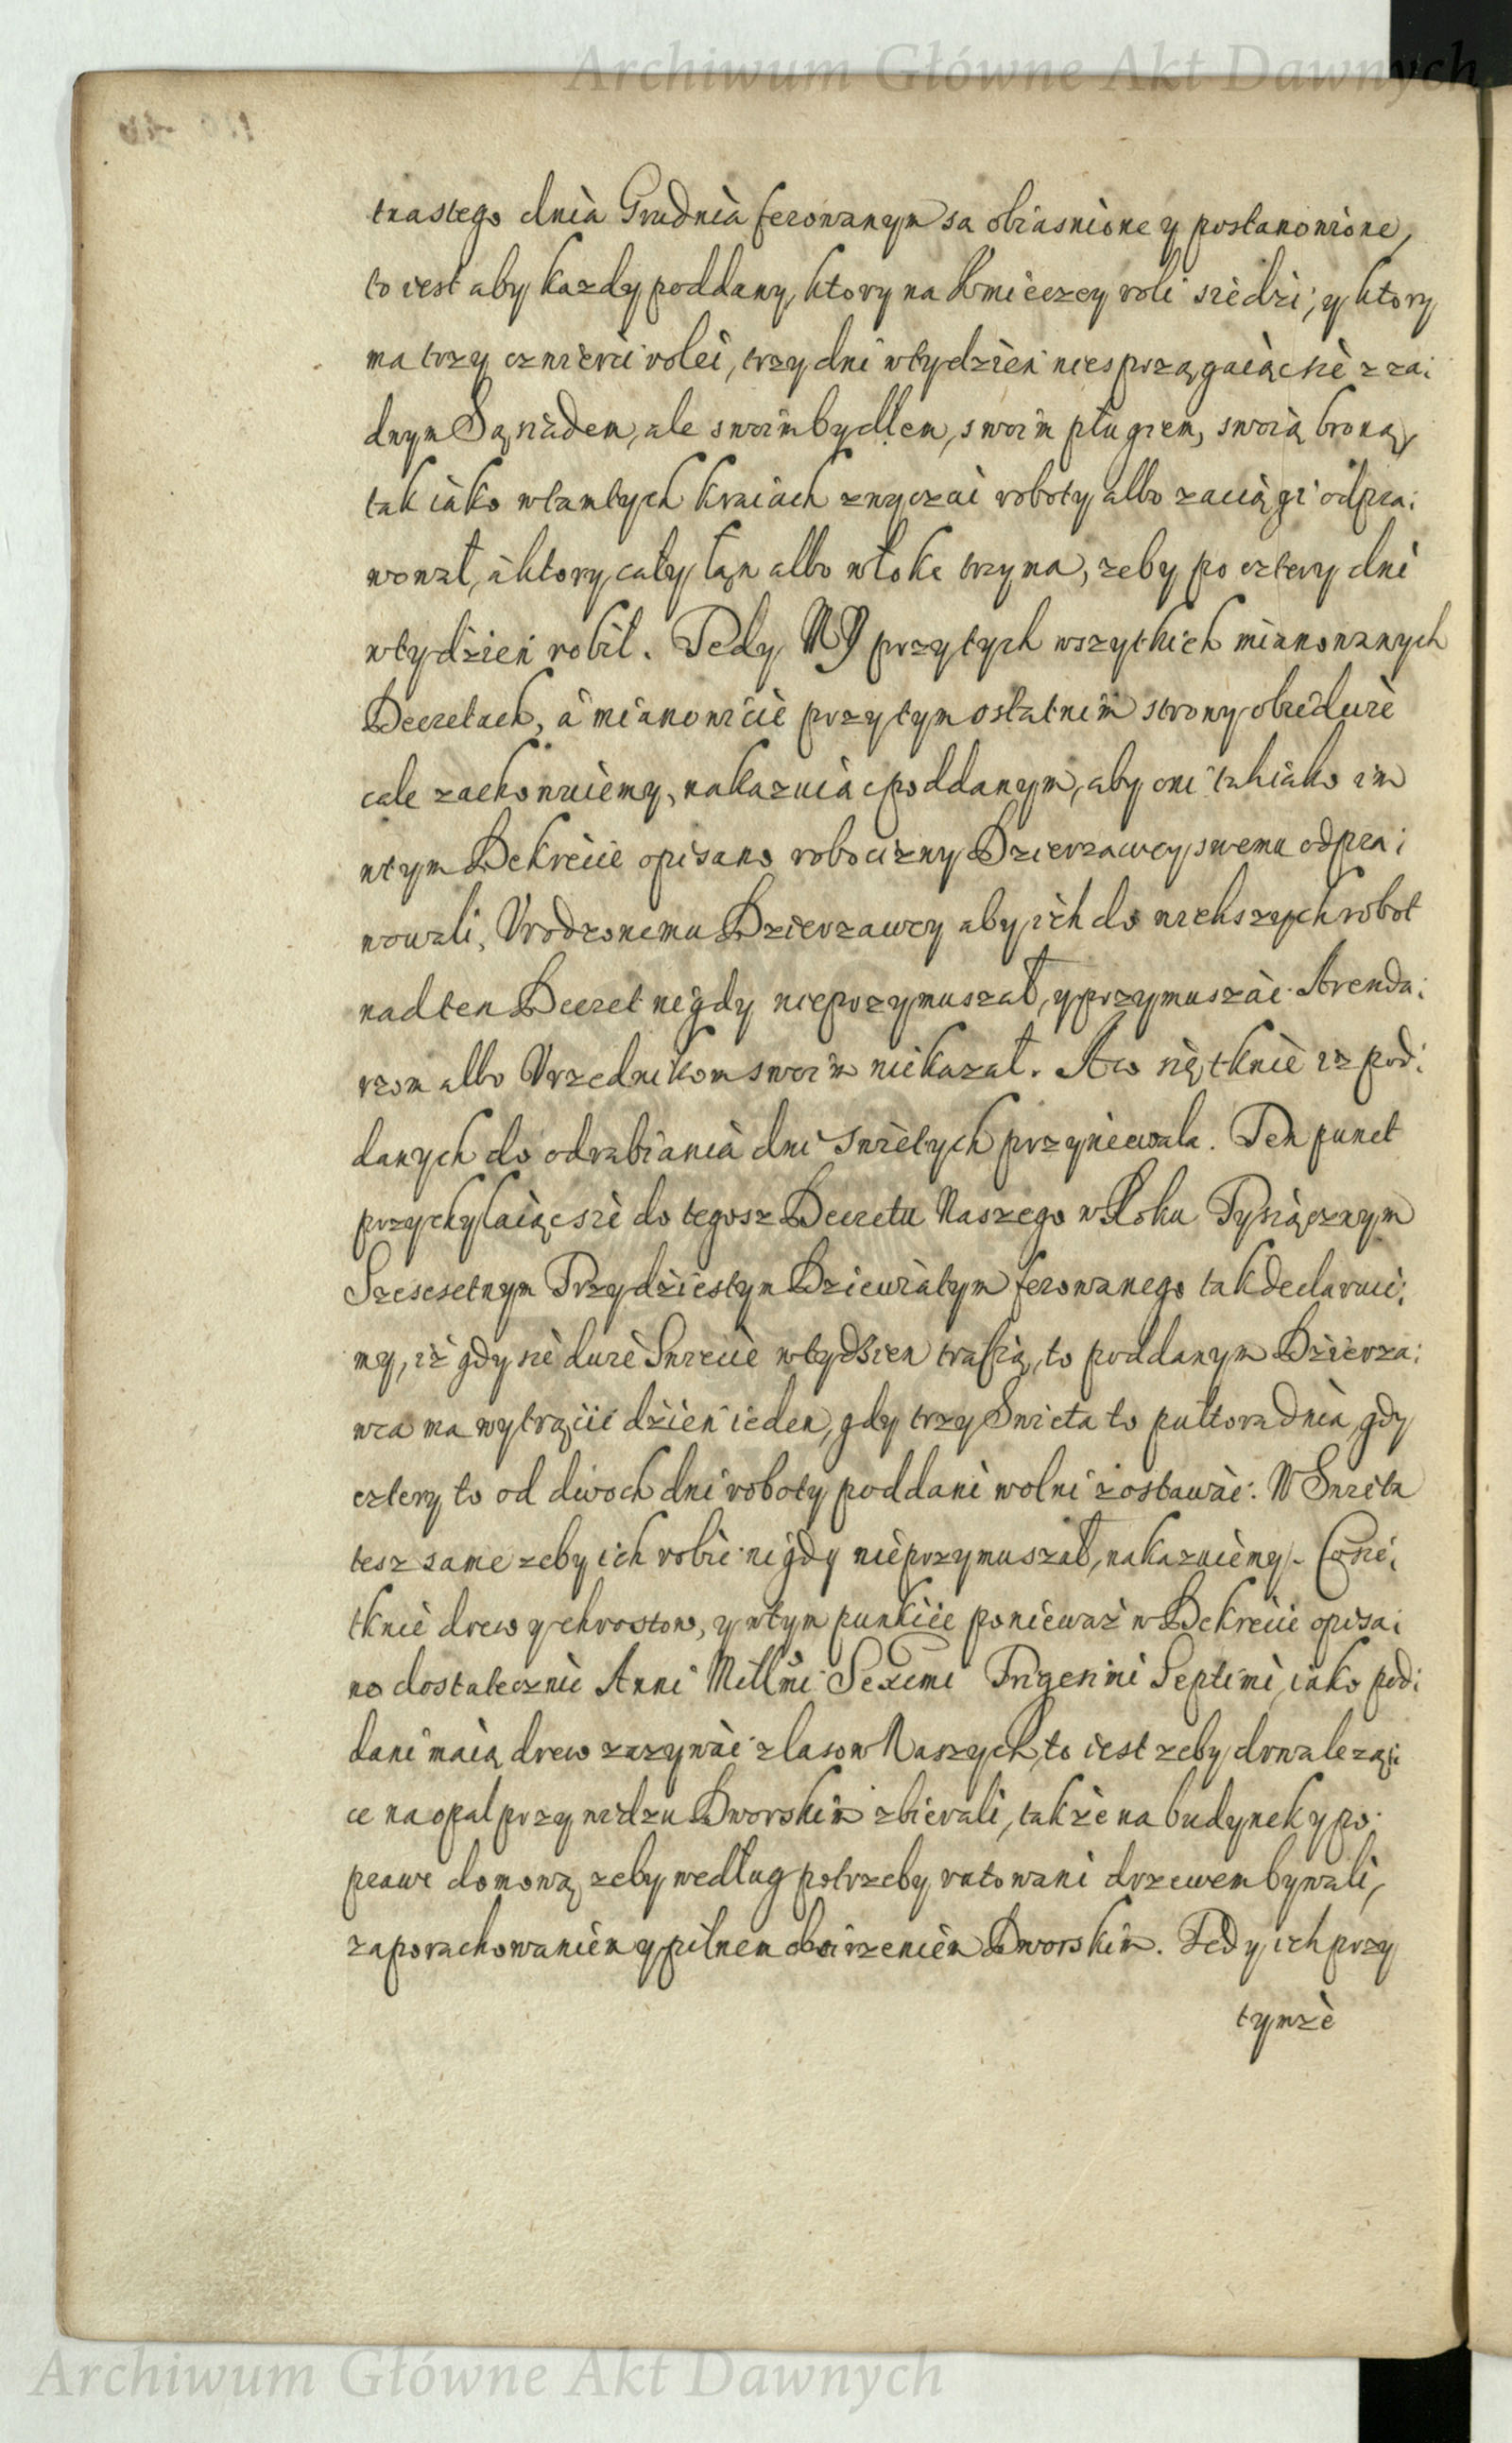 Archiwum Główne Akt Dawnych
tnastego dnia Grudnia ferowanym sa obiasnione y postanowione,
to iest aby kazdy poddany, ktory na Kmieczey roli siedzi, y ktory
ma trzy czwierci rolei, trzy dni wtydzien niesprzągaiąc sie z za:
dnym Sąsiadem, ale swoim bydłem, swoim pługiem, swoią broną,
tak iako wtamtych kraiach zwyczai roboty albo zaciągi odpra:
wował, a ktory cały łan albo włoke trzyma, zeby po cztery dni
wtydzien robił. Tedy MY przytych wszytkich mianowanych
Decretach, a mianowicie przytym ostatnim strony obiedwie
cale zachowuiemy, nakazuiąc poddanym, aby oni tak iako im
wtym Dekrecie opisano robocizny Dzierzawcy swemu odpra:
wowali, Vrodzonemu Dzierzawcy aby ich do wiekszych robot
nad ten Decret nigdy nieprzymuszał, y przymuszac Arenda:
rzom albo Vrzednikom swoim niekazał. A co się tknie iz pod:
danych do odrabiania dni Swietych przyniewala. Ten punct
przychylaiąc sie do tegosz Decretu Naszego w Roku Tysiącznym
Szescsetnym Trzydziestym Dziewiatym ferowanego tak declarui:
my, iż gdy sie dwie Swiecie wtydzien trafią, to poddanym Dzierza:
wca ma wytrącić dzien ieden, gdy trzy Swieta to pułtora dnia, gdy
cztery to od dwoch dni roboty poddani wolni zostawac. W Swieta
tesz same zeby ich robic nigdy nieprzymuszał, nakazuiemy. Co sie
tknie drew y chrostow, y wtym punkcie ponieważ w Dekrecie opisa:
no dostatecznie Anni Millmi Sexcmi Trigesimi Septimi, iako pod:
dani maią drew zazywac z lasow Naszych, to iest zeby drwa lezą:
ce na opał przy widzu Dworskim zbierali, także na budynek y po:
prawe domową, zeby według potrzeby ratowani drzewem bywali,
za porachowaniem y pilnem obeirzeniem Dworskim. Tedy ich przy
tymże
Archiwum Główne Akt Dawnych